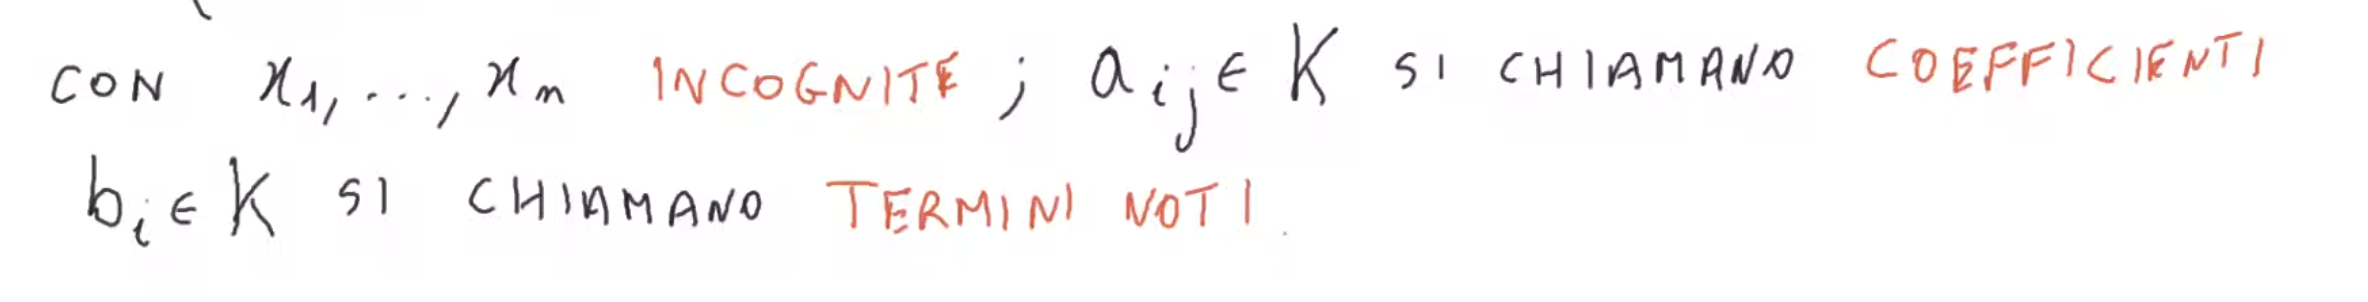 CON x₁, ..., xₙ INCOGNITE ; aᵢⱼ ∈ K SI CHIAMANO COEFFICIENTI
bᵢ ∈ K SI CHIAMANO TERMINI NOTI.